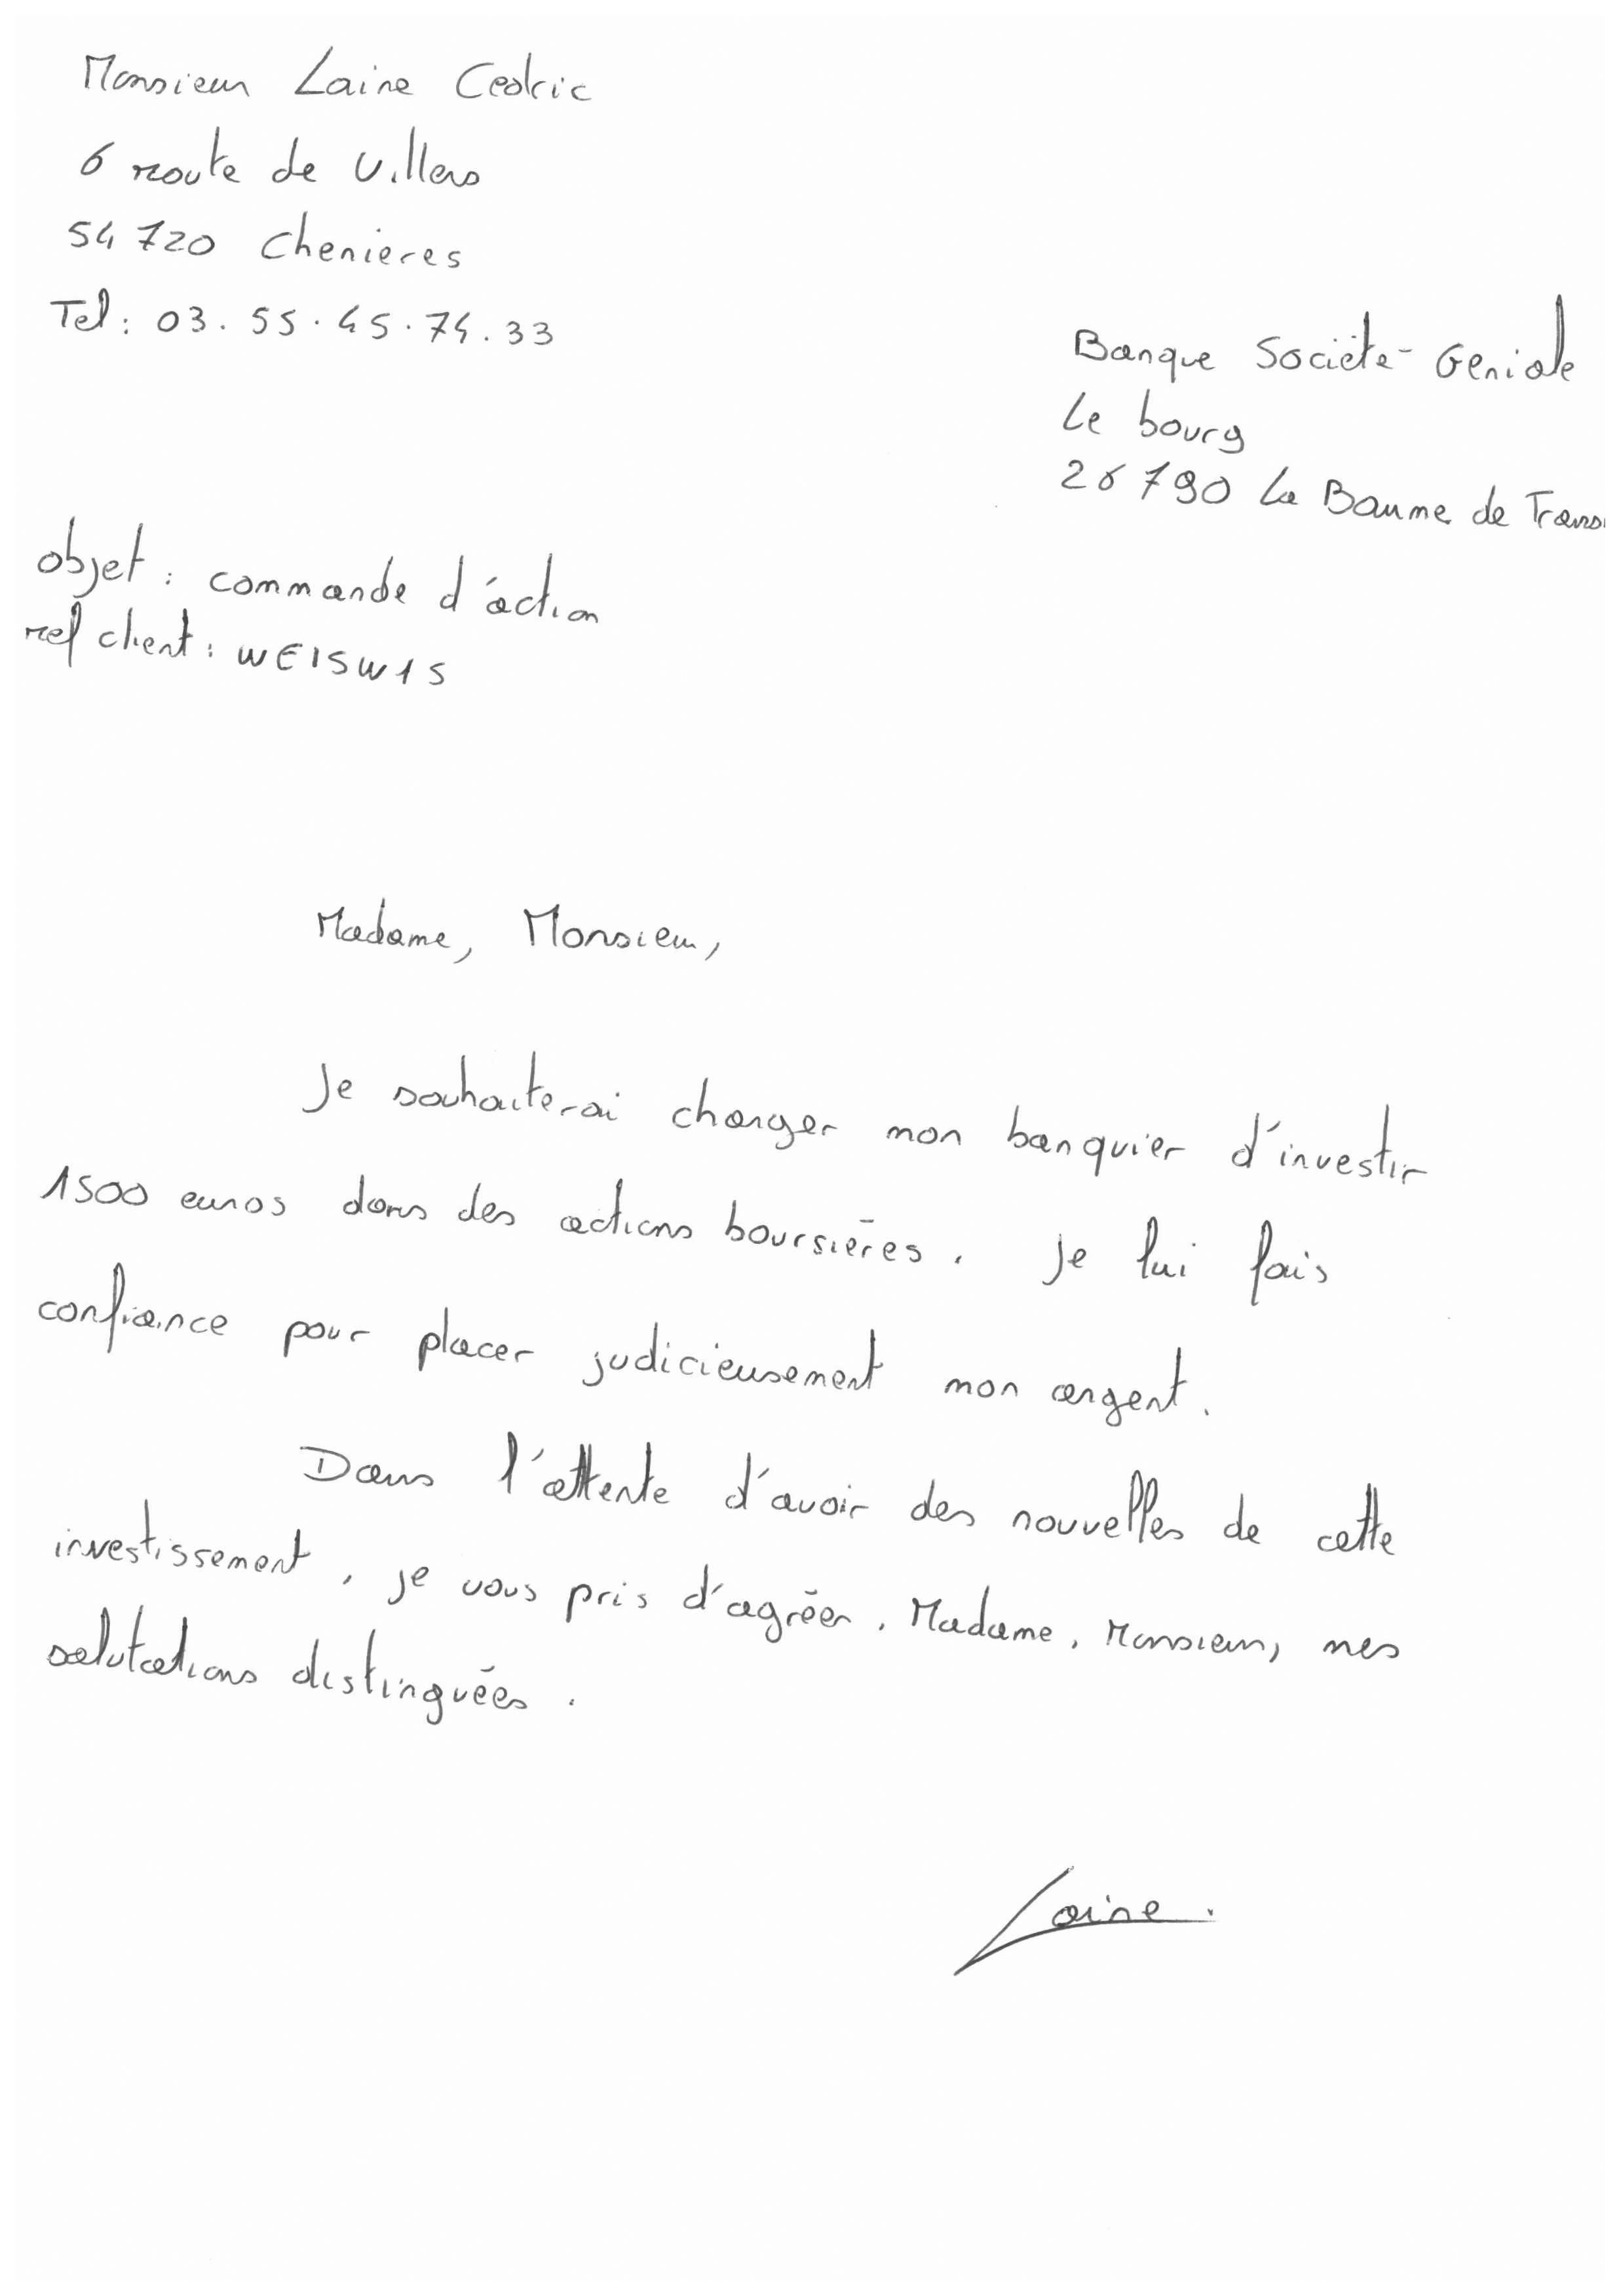 Monsieur Laine Cedric
6 route de Villers
54720 Chenieres
Tel : 03.55.45.74.33
Banque Société-Geniale
Le bourg
26790 La Baume de Trans
objet : commande d'action
ref client : WEISW15
Madame, Monsieur,
Je souhaiterai charger mon banquier d'investir
1500 euros dans des actions boursières. Je lui fais
confiance pour placer judicieusement mon argent.
Dans l'attente d'avoir des nouvelles de cette
investissement, je vous pris d'agréer, Madame, Monsieur, mes
salutations distinguées.
Laine.